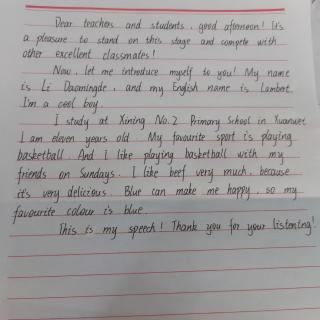 Dear teachers and students, good afternoon! It's
a pleasure to stand on this stage and compete with
other excellent classmates!
Now, let me introduce myself to you! My name
is Li Daamingde, and my English name is Lambert.
I'm a cool boy.
I study at Xining No.2 Primary School in Xuanwei.
I am eleven years old. My favourite sport is playing
basketball. And I like playing basketball with my
friends on Sundays. I like beef very much, because
it's very delicious. Blue can make me happy, so my
favourite colour is blue.
This is my speech! Thank you for your listening!